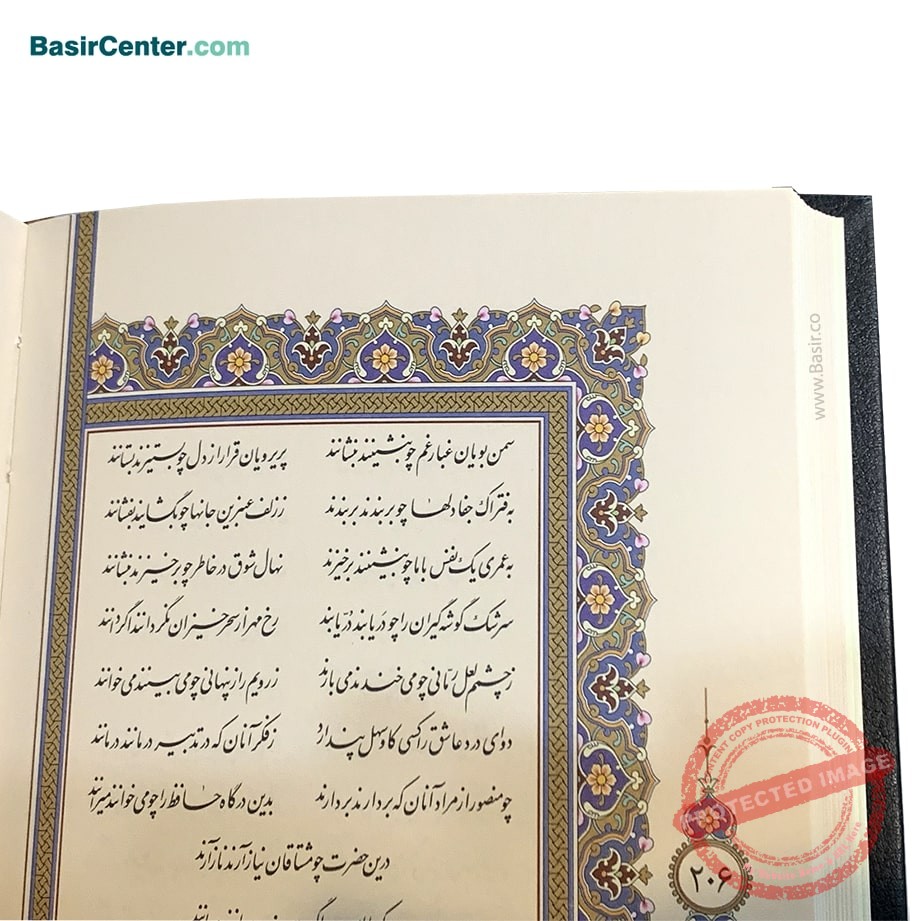 BasirCenter.com
www.Basir.co
سمن بویان غبار غم چو بنشینند بنشانند پریرویان قرار از دل چو بستیزند بستانند
به فتراک جفا دلها چو بربندند بربندند ز زلف عنبرین جانها چو بگشایند بفشانند
به عمری یک نفس با ما چو بنشینند برخیزند نهال شوق در خاطر چو برخیزند بنشانند
سرشک گوشه‌گیران را چو دریابند درّ یابند رخ مهر از سحرخیزان نگردانند اگر دانند
ز چشمم لعل رمّانی چو می خندند می بارند ز رویم راز پنهانی چو می بینند می خوانند
دوای درد عاشق را کسی کاو سهل پندارد ز فکر آنان که در تدبیر درمانند در مانند
چو منصور از مراد آنان که بردارند بر دارند بدین درگاه حافظ را چو می خوانند می رانند
درین حضرت چو مشتاقان نیاز آرند ناز آرند
۲۰۶
CONTENT COPY PROTECTION PLUGIN
PROTECTED IMAGE